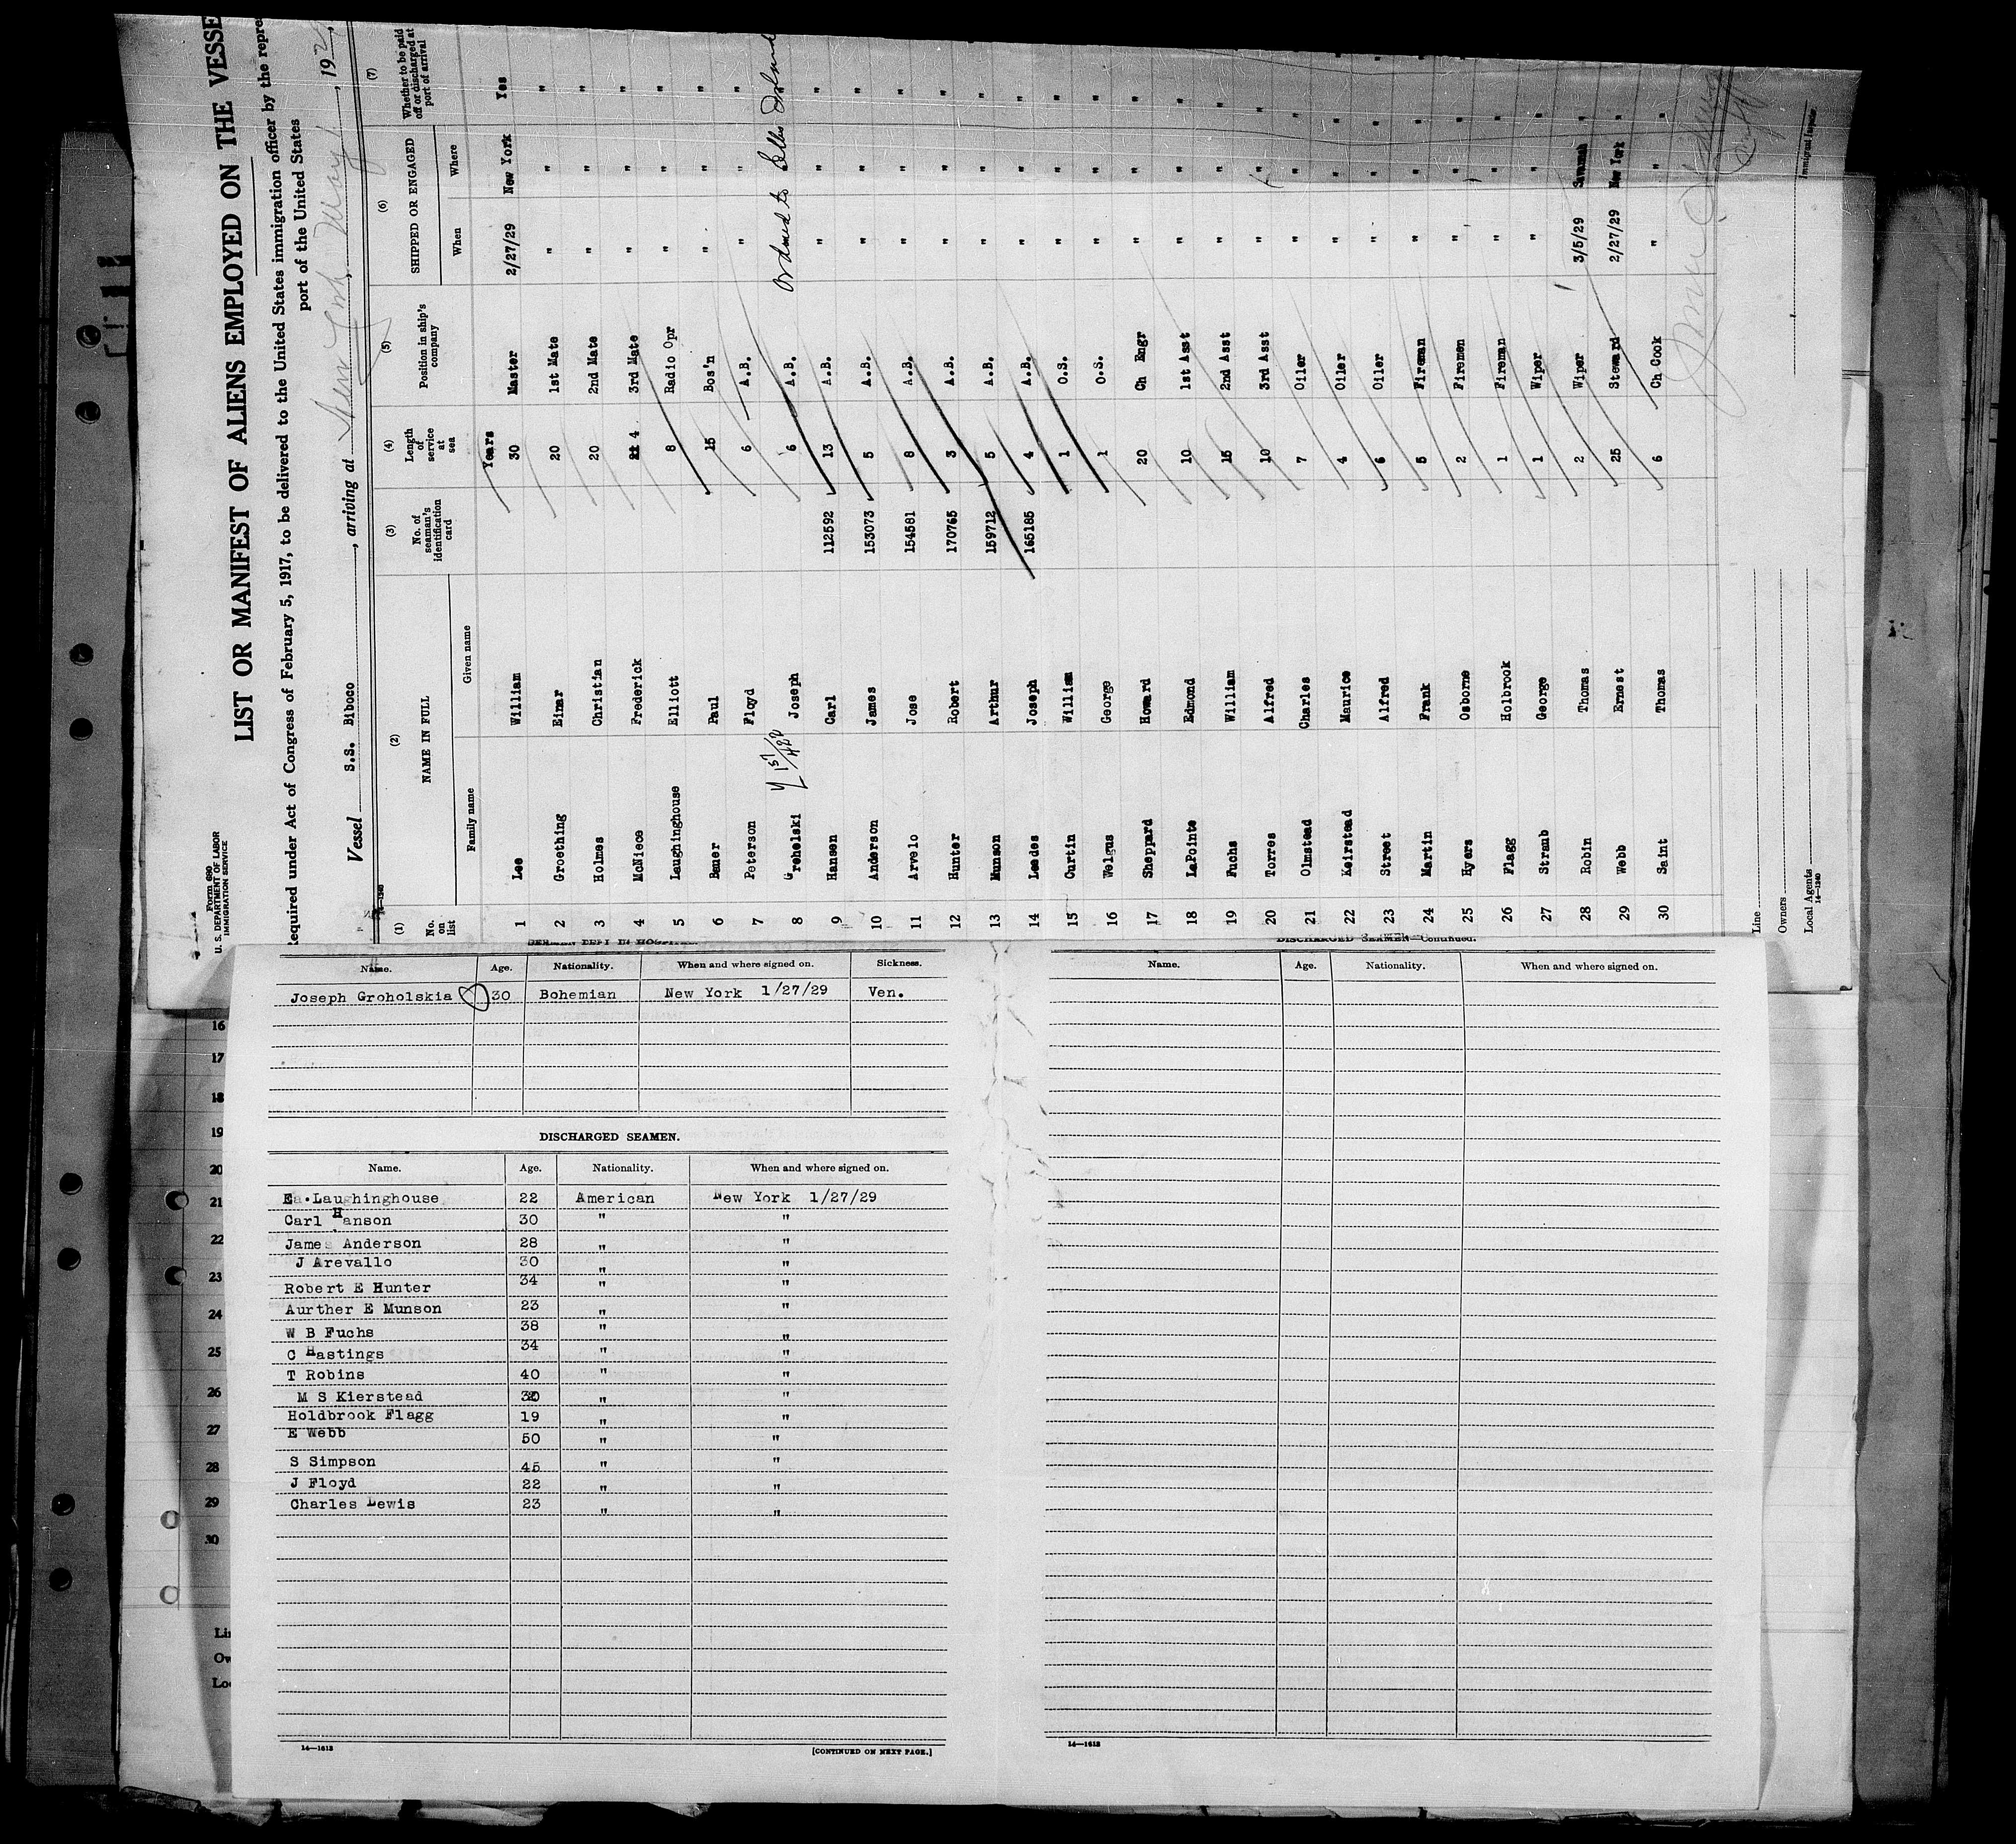 Form 680
U. S. DEPARTMENT OF LABOR
IMMIGRATION SERVICE
LIST OR MANIFEST OF ALIENS EMPLOYED ON THE VESSE
Required under Act of Congress of February 5, 1917, to be delivered to the United States immigration officer by the repre
port of the United States
Vessel S.S. Biboco, arriving at New York, May, 192
(1) (2) (3) (4) (5) (6) (7)
No. on list NAME IN FULL No. of seaman's identification card Length of service at sea Position in ship's company SHIPPED OR ENGAGED Whether to be paid off or discharged at port of arrival
Family name Given name When Where
Years
1 Lee William 30 Master 2/27/29 New York Yes
2 Groething Einar 20 1st Mate " " "
3 Holmes Christian 20 2nd Mate " " "
4 McNiece Frederick 4 3rd Mate " " "
5 Laughinghouse Elliott 8 Radio Opr " " "
6 Bamer Paul 15 Bos'n " " "
7 Peterson Floyd 6 A.B. " " "
8 Grehelski Joseph 6 A.B. Ordered to Ellis Island
9 Hansen Carl 112592 13 A.B. " " "
10 Anderson James 153073 5 A.B. " " "
11 Arvelo Jose 154581 8 A.B. " " "
12 Hunter Robert 170765 3 A.B. " " "
13 Munson Arthur 159712 5 A.B. " " "
14 Leedes Joseph 165185 4 A.B. " " "
15 Curtin William 1 O.S. " " "
16 Welgus George 1 O.S. " " "
17 Sheppard Howard 20 Ch Engr " " "
18 LaPointe Edmond 10 1st Asst " " "
19 Fuchs William 15 2nd Asst " " "
20 Torres Alfred 10 3rd Asst " " "
21 Olmstead Charles 7 Oiler " " "
22 Keirstead Maurice 4 Oiler " " "
23 Street Alfred 6 Oiler " " "
24 Martin Frank 5 Fireman " " "
25 Hyers Osborne 2 Firemen " " "
26 Flagg Holbrook 1 Fireman " " "
27 Straub George 1 Wiper " " "
28 Robin Thomas 2 Wiper 3/5/29 Savannah "
29 Webb Ernest 25 Steward 2/27/29 New York "
30 Saint Thomas 6 Ch Cook " " "
Line
Owners
Local Agents
14—1240
Immigrant Inspector
Name. Age. Nationality. When and where signed on. Sickness.
Joseph Groholskia 30 Bohemian New York 1/27/29 Ven.
DISCHARGED SEAMEN.
Name. Age. Nationality. When and where signed on.
Ea.Laughinghouse 22 American New York 1/27/29
Carl Hanson 30 " "
James Anderson 28 " "
J Arevallo 30 " "
Robert E Hunter 34 " "
Aurther E Munson 23 " "
W B Fuchs 38 " "
C Hastings 34 " "
T Robins 40 " "
M S Kierstead 30 " "
Holdbrook Flagg 19 " "
E Webb 50 " "
S Simpson 45 " "
J Floyd 22 " "
Charles Lewis 23 " "
14—1613
[CONTINUED ON NEXT PAGE.]
DISCHARGED SEAMEN—Continued.
Name. Age. Nationality. When and where signed on.
14—1613
16
17
18
19
20
21
22
23
24
25
26
27
28
29
30
Li
Ow
Loc